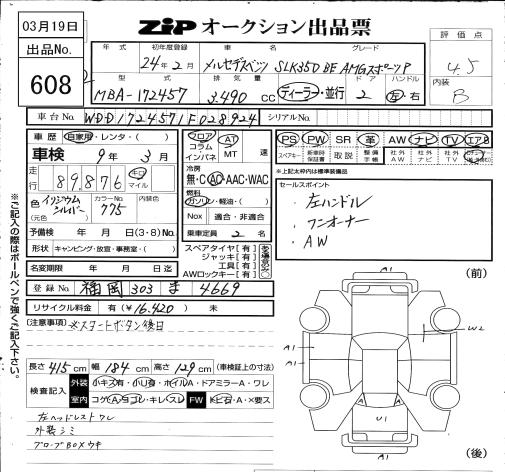 03月19日
ZIP オークション出品票
出品No.
608
評価点
4.5
内装
B
年式 初年度登録 車名 グレード
24年2月 メルセデスベンツ SLK350 BE AMGスポーツP
型式 排気量 ドア ハンドル
MBA-172457 3,490 CC ディーラー・並行 2 左・右
車台No. WDD1724571F028924 シリアルNo.
車歴 自家用・レンタ・( )
車検 9年3月
走行 89,876 キロ マイル
色 イリジウムシルバー (元色) カラーNo. 775 内装色
予備検 年 月 日(3・8)No.
形状 キャンピング・放宣・事務室・( )
名変期限 年 月 日迄
フロア コラム インパネ AT MT 速
冷房
無・C AC・AAC・WAC
燃料
ガソリン・軽油・( )
Nox 適合・非適合
乗車定員 2 名
スペアタイヤ[有]
ジャッキ[有]
工具[有]
AWロックキー[有]
PS PW SR 革 AW ナビ TV エアB
スペアキー 新車時保証書 取説 整備手帳 社外AW 社外ナビ 社外TV
※上記太枠内は標準装備品
セールスポイント
・左ハンドル
・ワンオーナー
・AW
登録No. 福岡 303 ま 4669
リサイクル料金 有(¥16,420) 未
(注意事項)
※スタートボタン後日
長さ 415 cm 幅 184 cm 高さ 129 cm (車検証上の寸法)
検査記入 外装 小キズ有・小U有・ホイルA・ドアミラーA・ワレ
室内 コゲA・ヨゴレ・キレ・スレ FW トビ石・A・×要ス
左ヘッドレストワレ
外装シミ
グローブBOXウキ
※ご記入の際はボールペンで強くご記入下さい。
(前)
A1
W2
A1
A1
U1
A1
(後)